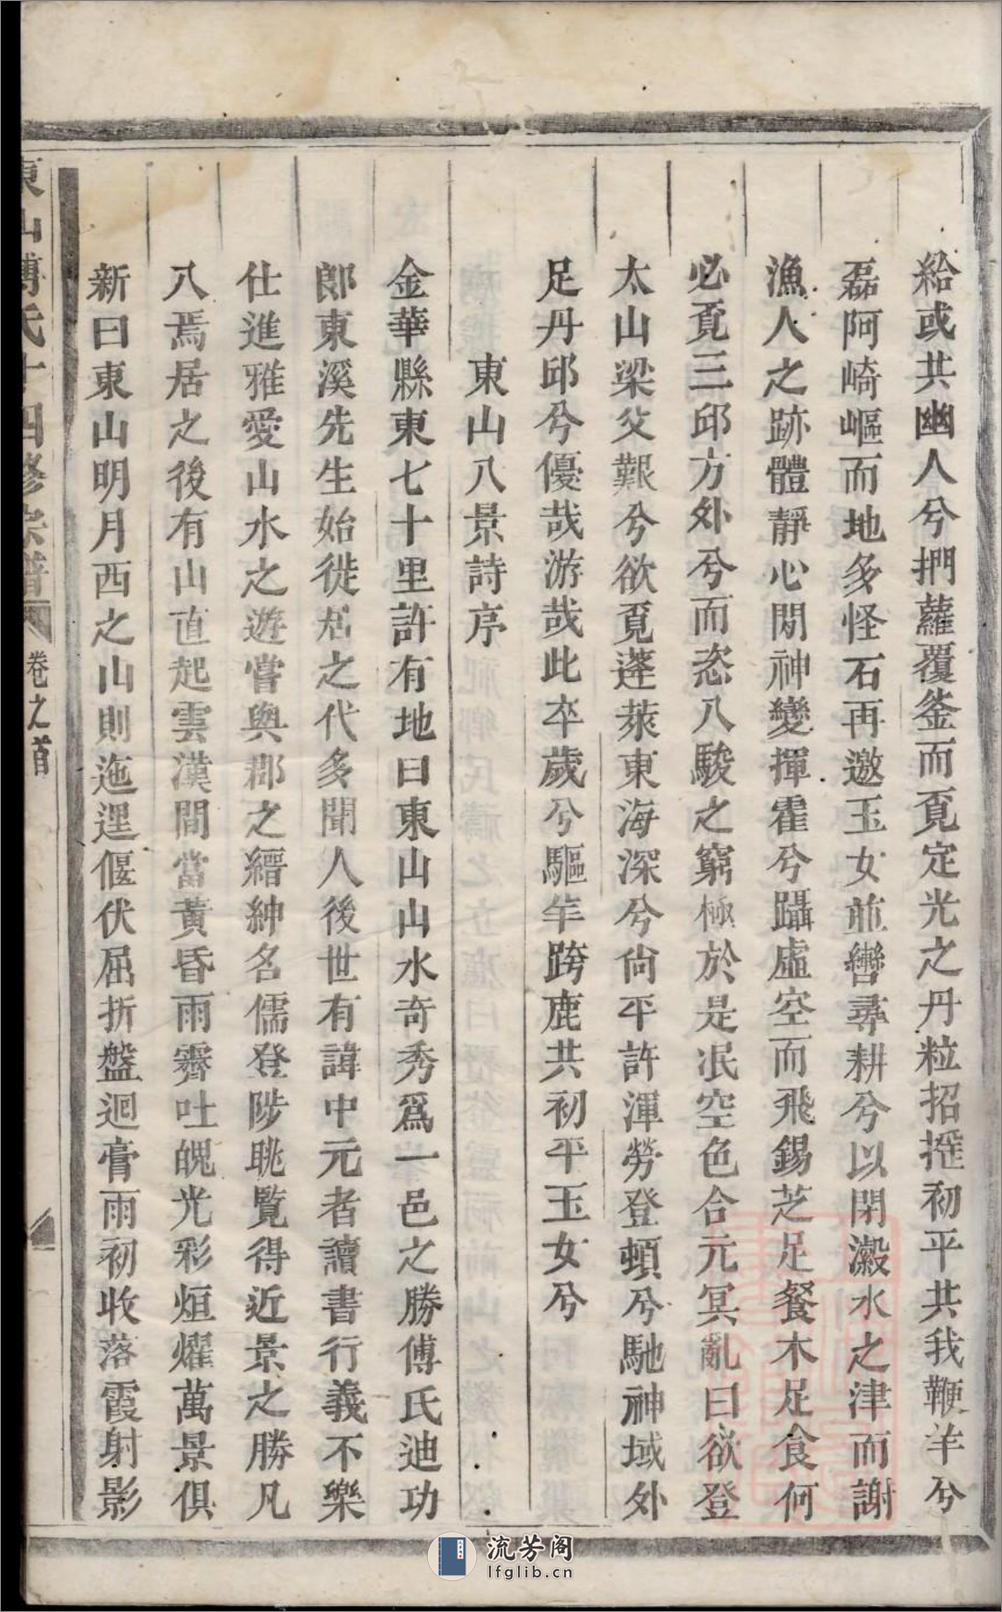 給或共幽人兮捫蘿覆釜而覔定光之丹粒招搖初平共我鞭羊兮
磊阿崎嶇而地多怪石再邀玉女並轡尋耕兮以閉瀫水之津而謝
漁人之跡體靜心閒神變揮霍兮躡虛空而飛錫芝足餐木足食何
必覔三邱方外兮而恣八駿之窮極於是泯空色合元冥亂曰欲登
太山梁父艱兮欲覔蓬萊東海深兮尙平許渾勞登頓兮馳神域外
足丹邱兮優哉游哉此卒歲兮驅羊跨鹿共初平玉女兮
東山八景詩序
金華縣東七十里許有地曰東山山水奇秀爲一邑之勝傅氏迪功
郞東溪先生始徙居之代多聞人後世有諱中元者讀書行義不樂
仕進雅愛山水之遊嘗與郡之縉紳名儒登陟眺覽得近景之勝凡
八焉居之後有山直起雲漢間當黃昏雨霽吐魄光彩烜燿萬景俱
新曰東山明月西之山則迤邐偃伏屈折盤迴膏雨初收落霞射影
東山傅氏十四修宗譜 卷之首
流芳阁
lfglib.cn